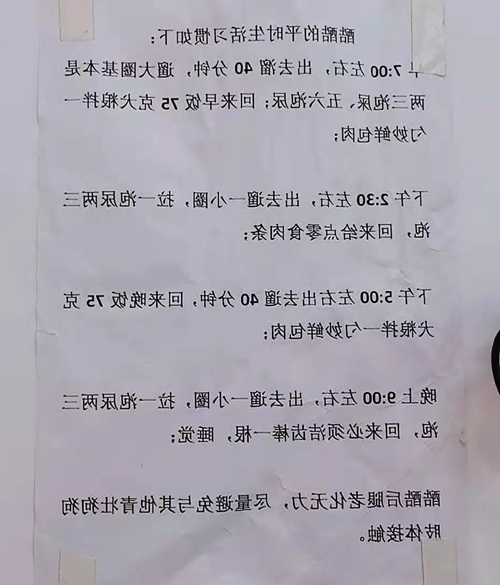 酷酷的平时生活习惯如下：
午 7:00 左右，出去溜 40 分钟，遛大圈基本是
两三泡尿、五六泡尿；回来早饭 75 克犬粮拌一
勺妙鲜包肉；
下午 2:30 左右，出去遛一小圈，拉一泡尿两三
泡，回来给点零食肉条；
下午 5:00 左右出去遛 40 分钟，回来晚饭 75 克
犬粮拌一勺妙鲜包肉；
晚上 9:00 左右，出去遛一小圈，拉一泡尿两三
泡，回来必须洁齿棒一根，睡觉；
酷酷后腿老化无力，尽量避免与其他青壮狗狗
肢体接触。